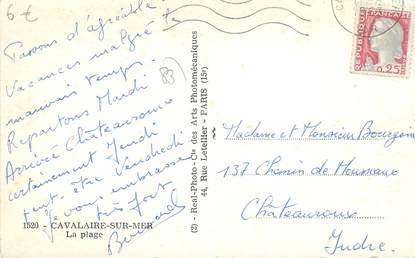 6€
Passons d'agréables
Vacances malgré le
mauvais temps.
Repartons Mardi
Arrivée Châteauroux
certainement Jeudi
peut-être Vendredi
Je vous embrasse
très fort
Bernard
83
1520 - CAVALAIRE-SUR-MER
La plage
(2) - Real-Photo - Cie des Arts Photomécaniques
44, Rue Letellier - PARIS (15e)
REPUBLIQUE FRANÇAISE
0,25
Madame et Monsieur Bourgoin
137 Chemin de Mousseaux
Châteauroux
Indre.